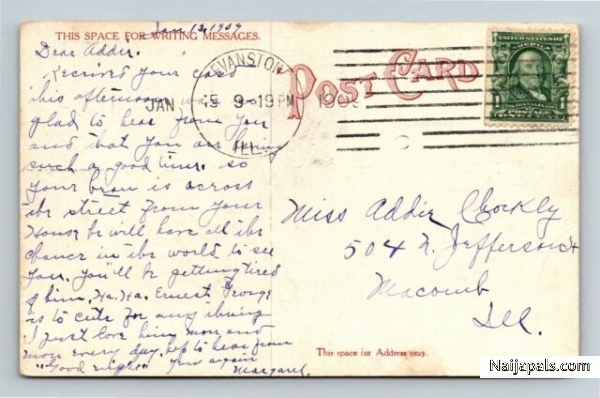 Jan 13, 1909
THIS SPACE FOR WRITING MESSAGES.
Dear Addie.
Received your card
this afternoon was so
glad to hear from you
and that you are having
such a good time. so
your beau is across
the street from your
House he will have all the
chance in the world to see
you. You'll be getting tired
of him. Ha. Ha. Ernest George
is to cute for any thing
I just love him more and
more every day. hop to hear from
"Good night" your again
Margaret.
EVANSTON
JAN 15 9-19PM 190
ILL.
POST CARD
UNITED STATES OF
AMERICA
1 1
Miss Addie
504 N. Jefferson st
Macomb
Ill.
This space for Address only.
Naijapals.com